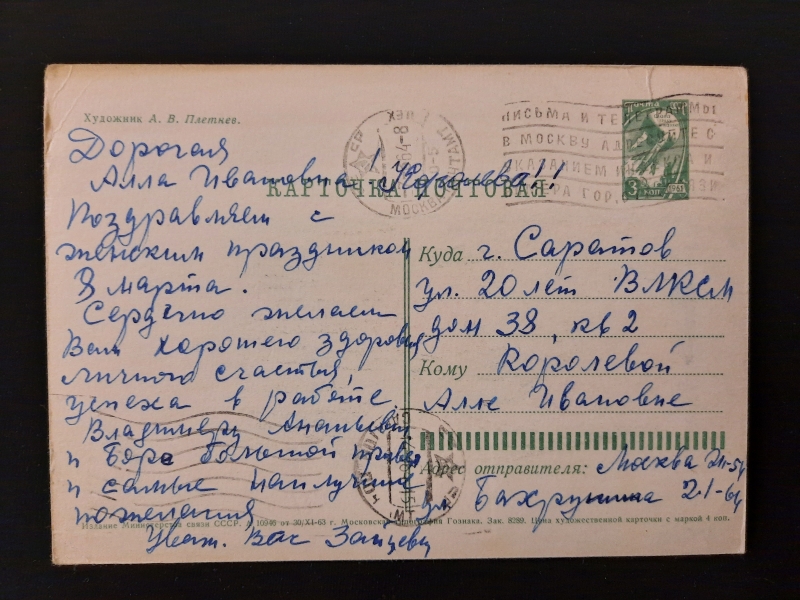 Художник А. В. Плетнев.
ПОЧТА СССР
3 коп
1961
ПИСЬМА И ТЕЛЕГРАММЫ
В МОСКВУ АДРЕСУЙТЕ С
УКАЗАНИЕМ
И
ГОР.
МОСКВА
64-8
КАРТОЧКА ПОЧТОВАЯ
Дорогая
Алла Ивановна Королева!!
Поздравляем с
женским праздником
8 марта.
Сердечно желаем
Вам хорошего здоровья
личного счастья,
успеха в работе.
Владимиру Ананьевичу
и Боре большой привет
и самые наилучшие
пожелания
Уваж. Вас Зайцевы
Куда г. Саратов
ул. 20 лет ВЛКСМ
дом 38, кв 2
Кому Королевой
Алле Ивановне
Адрес отправителя: Москва Ж-54
ул. Бахрушина 21-64
Издание Министерства связи СССР. А 10946 от 30/XI-63 г. Московская типография Гознака. Зак. 8289. Цена художественной карточки с маркой 4 коп.